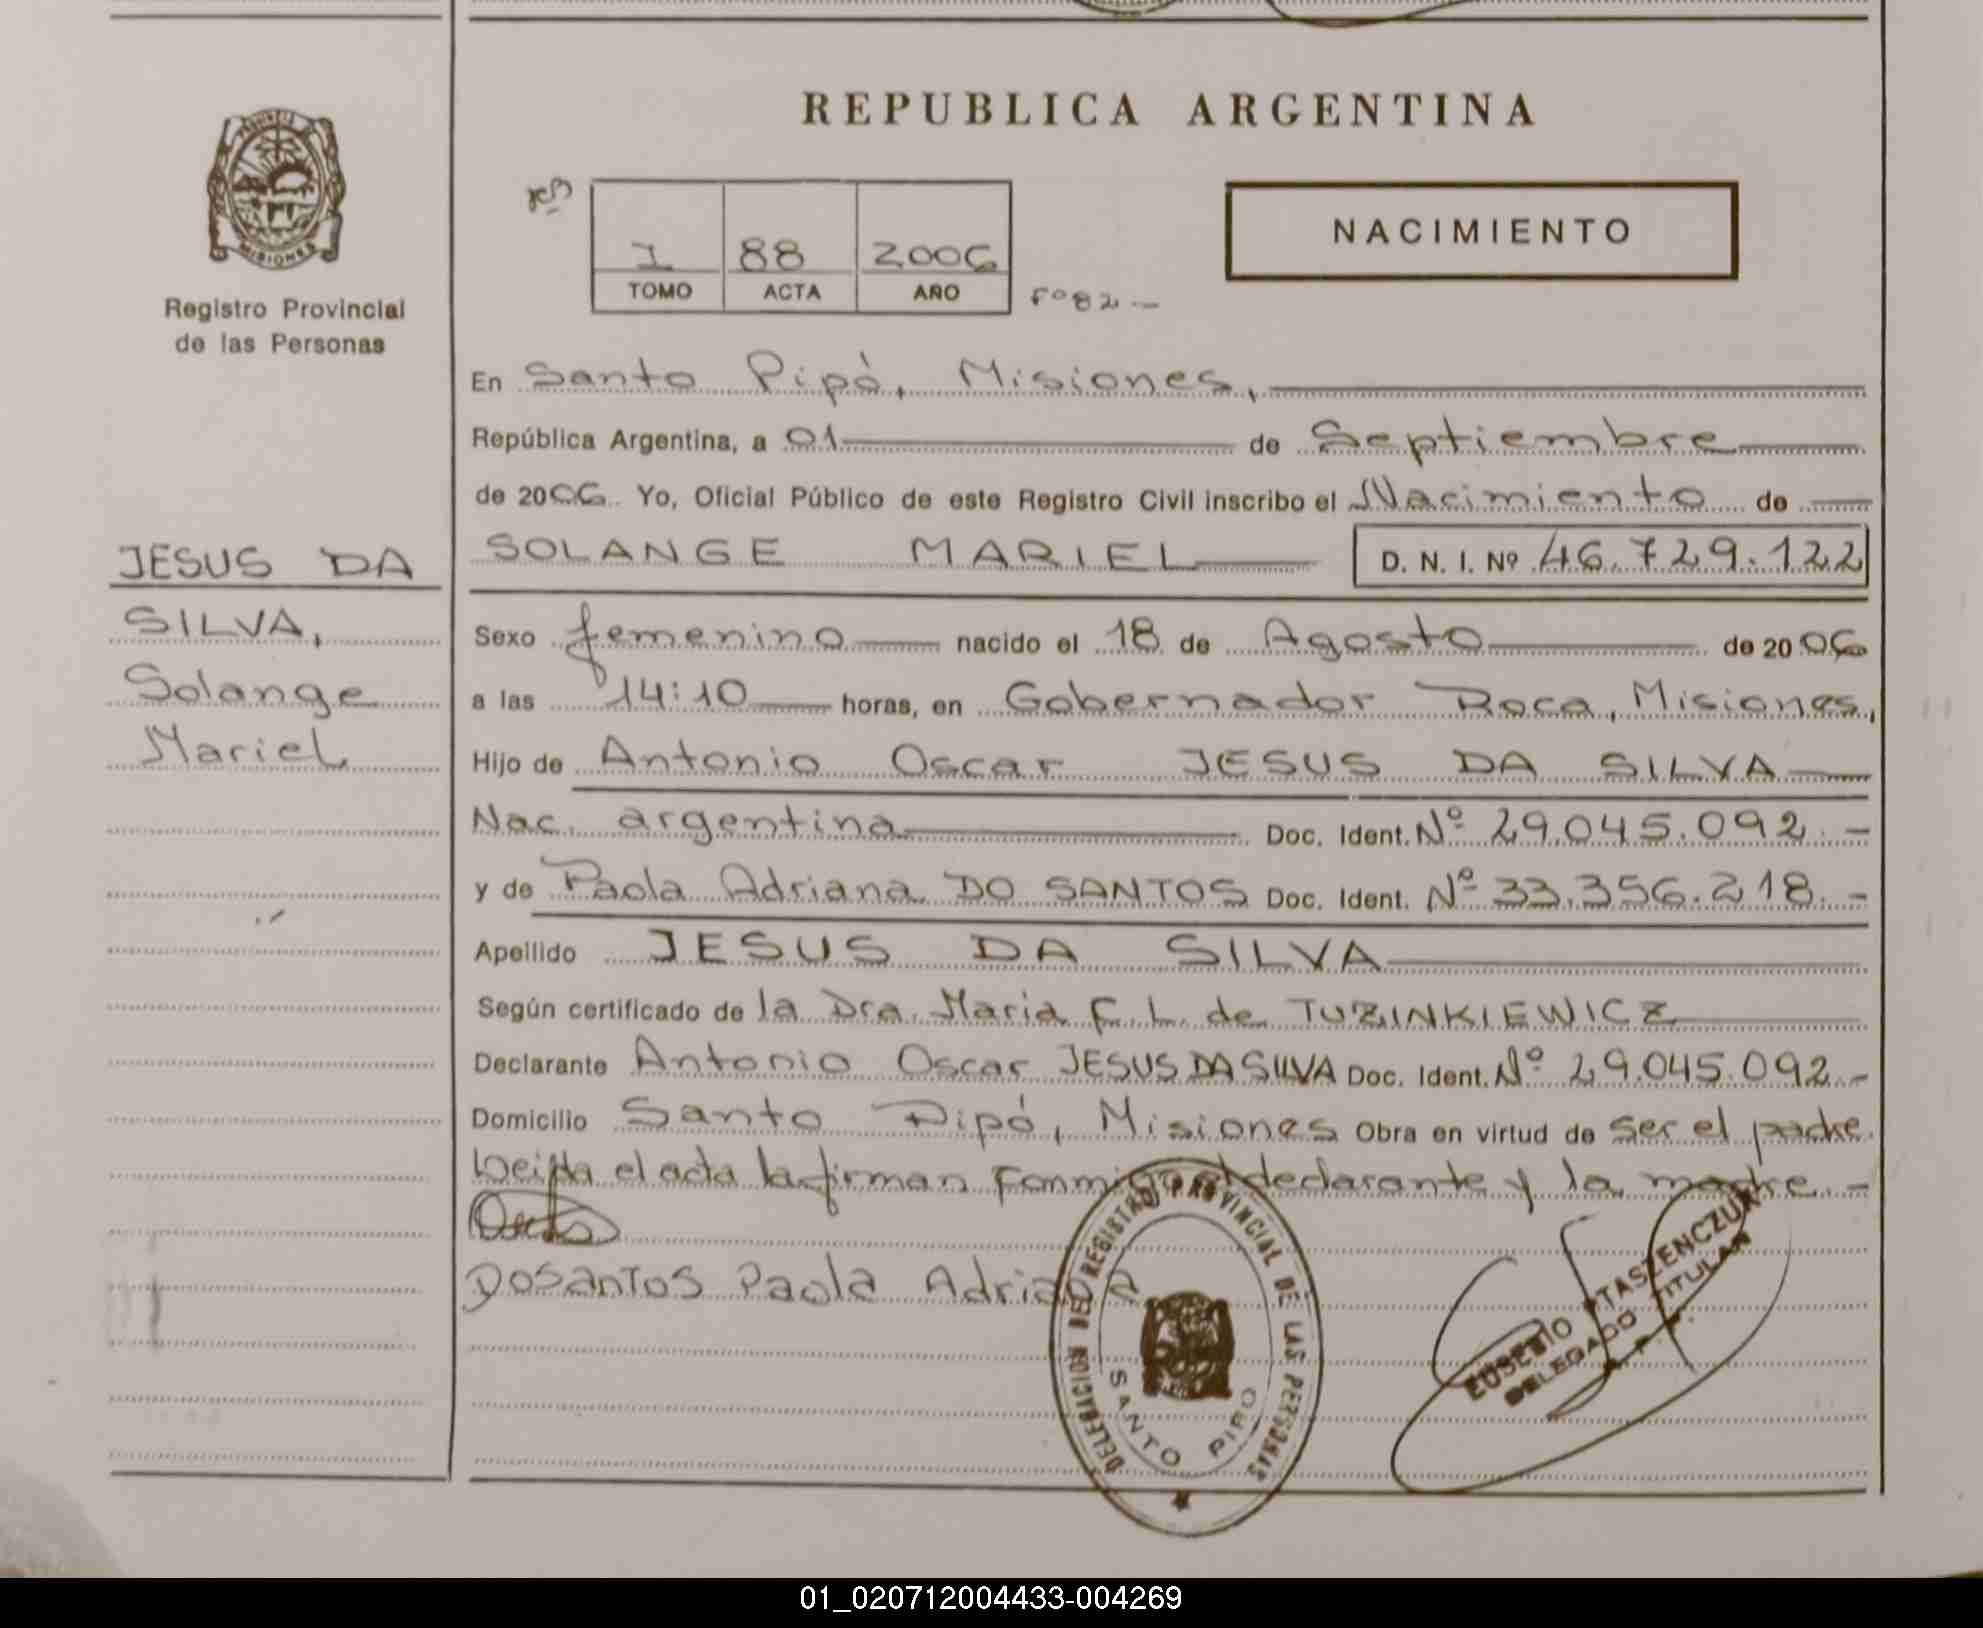 REPUBLICA ARGENTINA
PROVINCIA
MISIONES
Registro Provincial
de las Personas
1 88 2006
TOMO ACTA AÑO
Fº 82 -
NACIMIENTO
En Santo Pipó, Misiones,
República Argentina, a 01 de Septiembre
de 2006 Yo, Oficial Público de este Registro Civil inscribo el Nacimiento de
SOLANGE MARIEL D. N. I. Nº 46.729.122
JESUS DA
SILVA,
Solange
Mariel
Sexo femenino nacido el 18 de Agosto de 2006
a las 14:10 horas, en Gobernador Roca, Misiones,
Hijo de Antonio Oscar JESUS DA SILVA
Nac. argentina Doc. Ident. Nº 29.045.092.-
y de Paola Adriana DO SANTOS Doc. Ident. Nº 33.356.218.-
Apellido JESUS DA SILVA
Según certificado de la Dra. Maria F. L. de TUZINKIEWICZ
Declarante Antonio Oscar JESUS DA SILVA Doc. Ident. Nº 29.045.092.-
Domicilio Santo Pipó, Misiones Obra en virtud de ser el padre.
Leida el acta la firman conmigo el declarante y la madre.-
DOSANTOS Paola Adriana
DELEGACION DEL REGISTRO PROVINCIAL DE LAS PERSONAS
SANTO PIPO
EUSEBIO PTASZENCZUK
DELEGADO TITULAR
R. P. P.
01_020712004433-004269